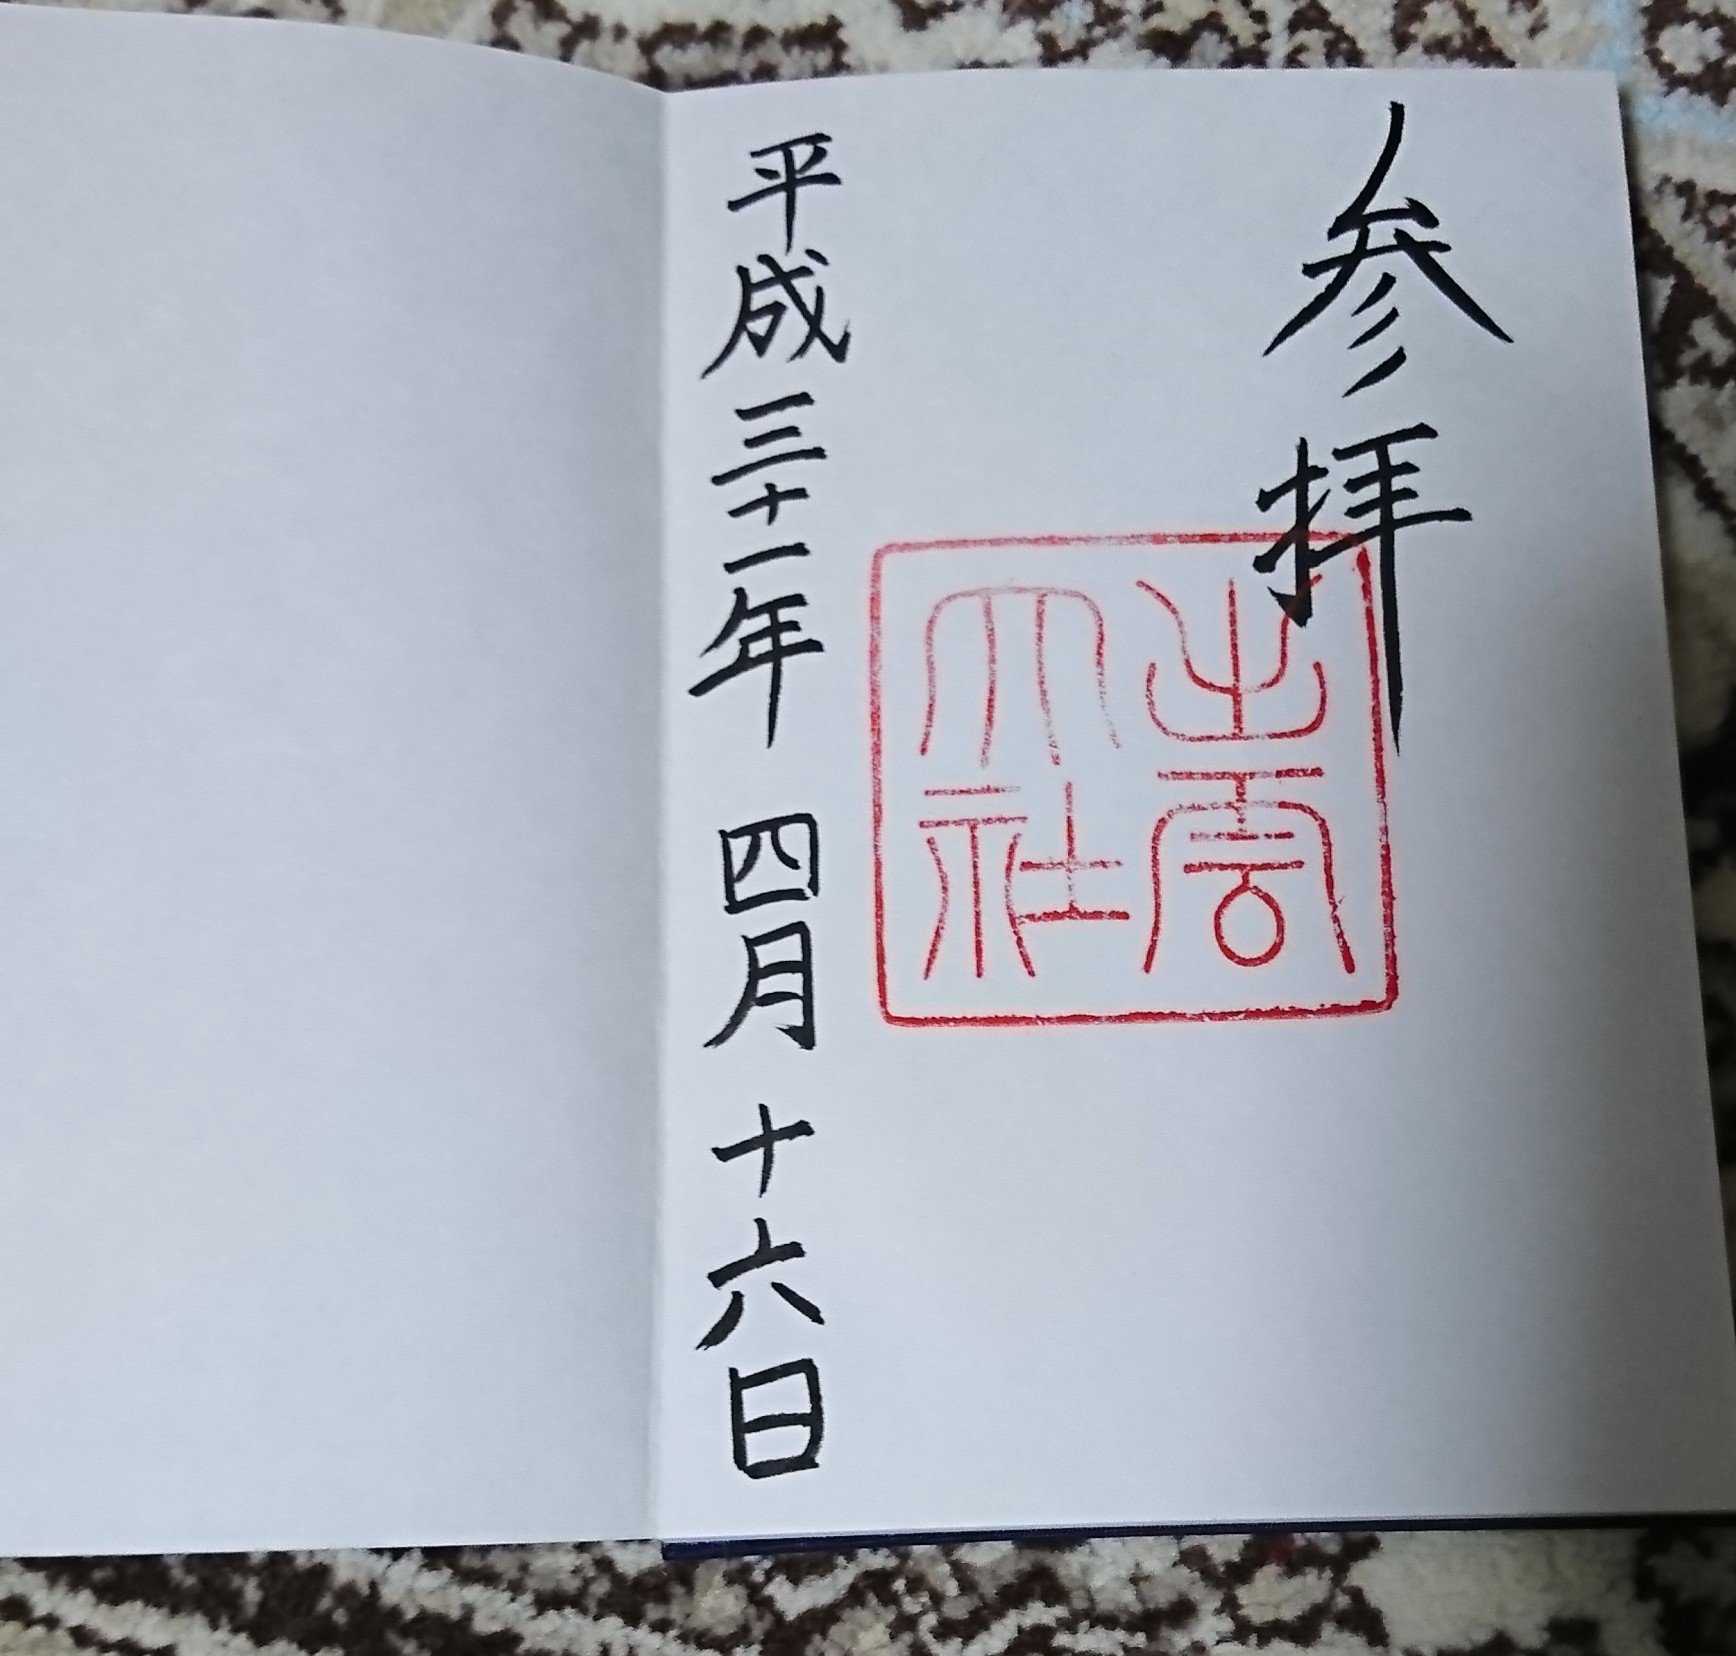 参拝
出雲
大社
平成三十一年 四月 十六日